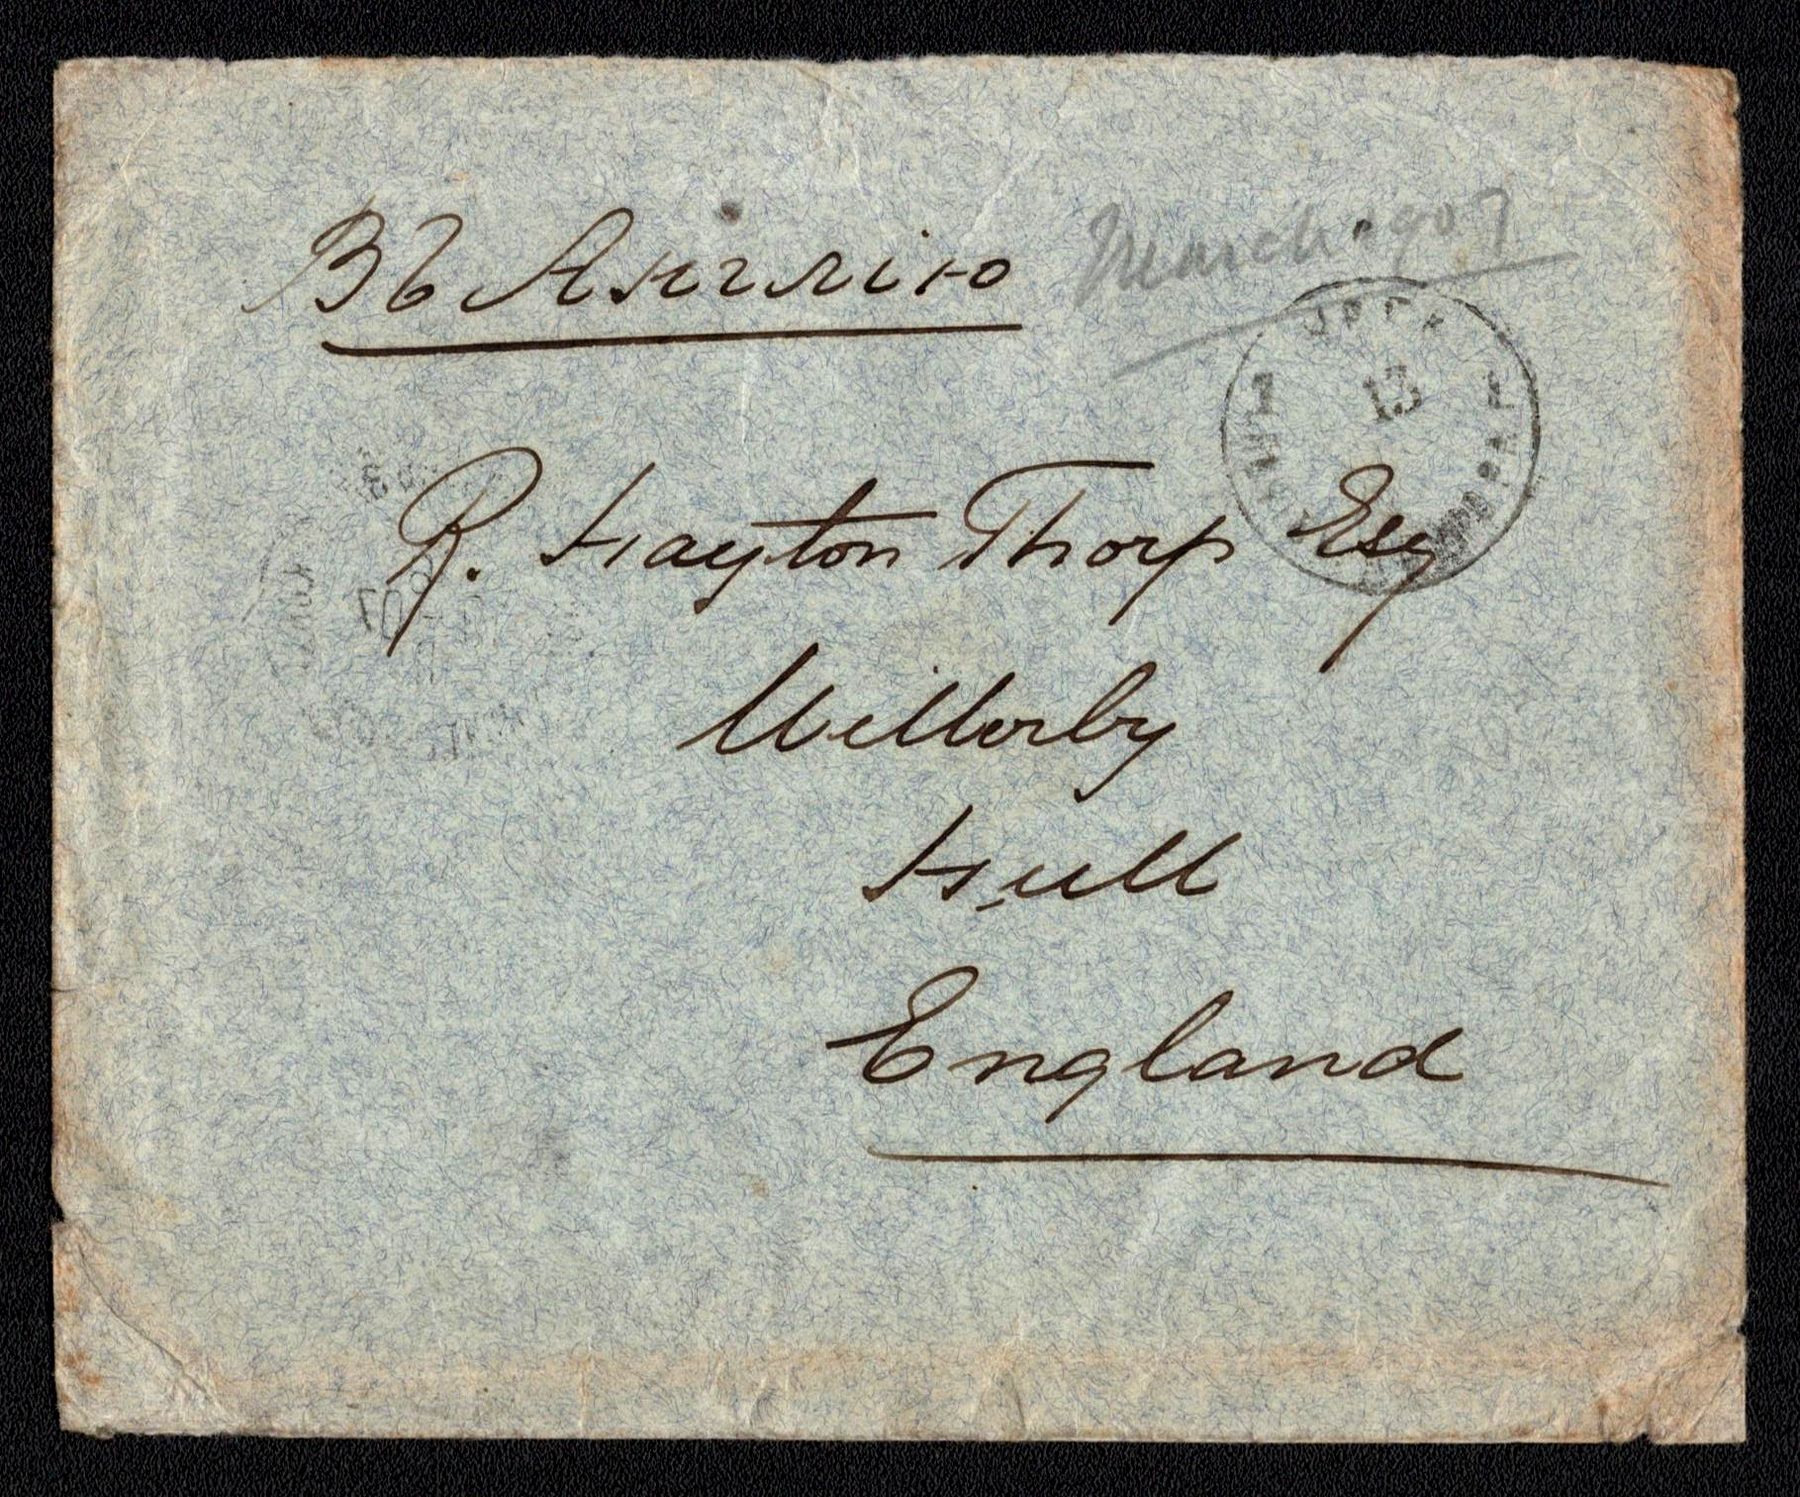 Въ Англію
March 1907
13
R. Hayton Thorp Esq
Willerby
Hull
England